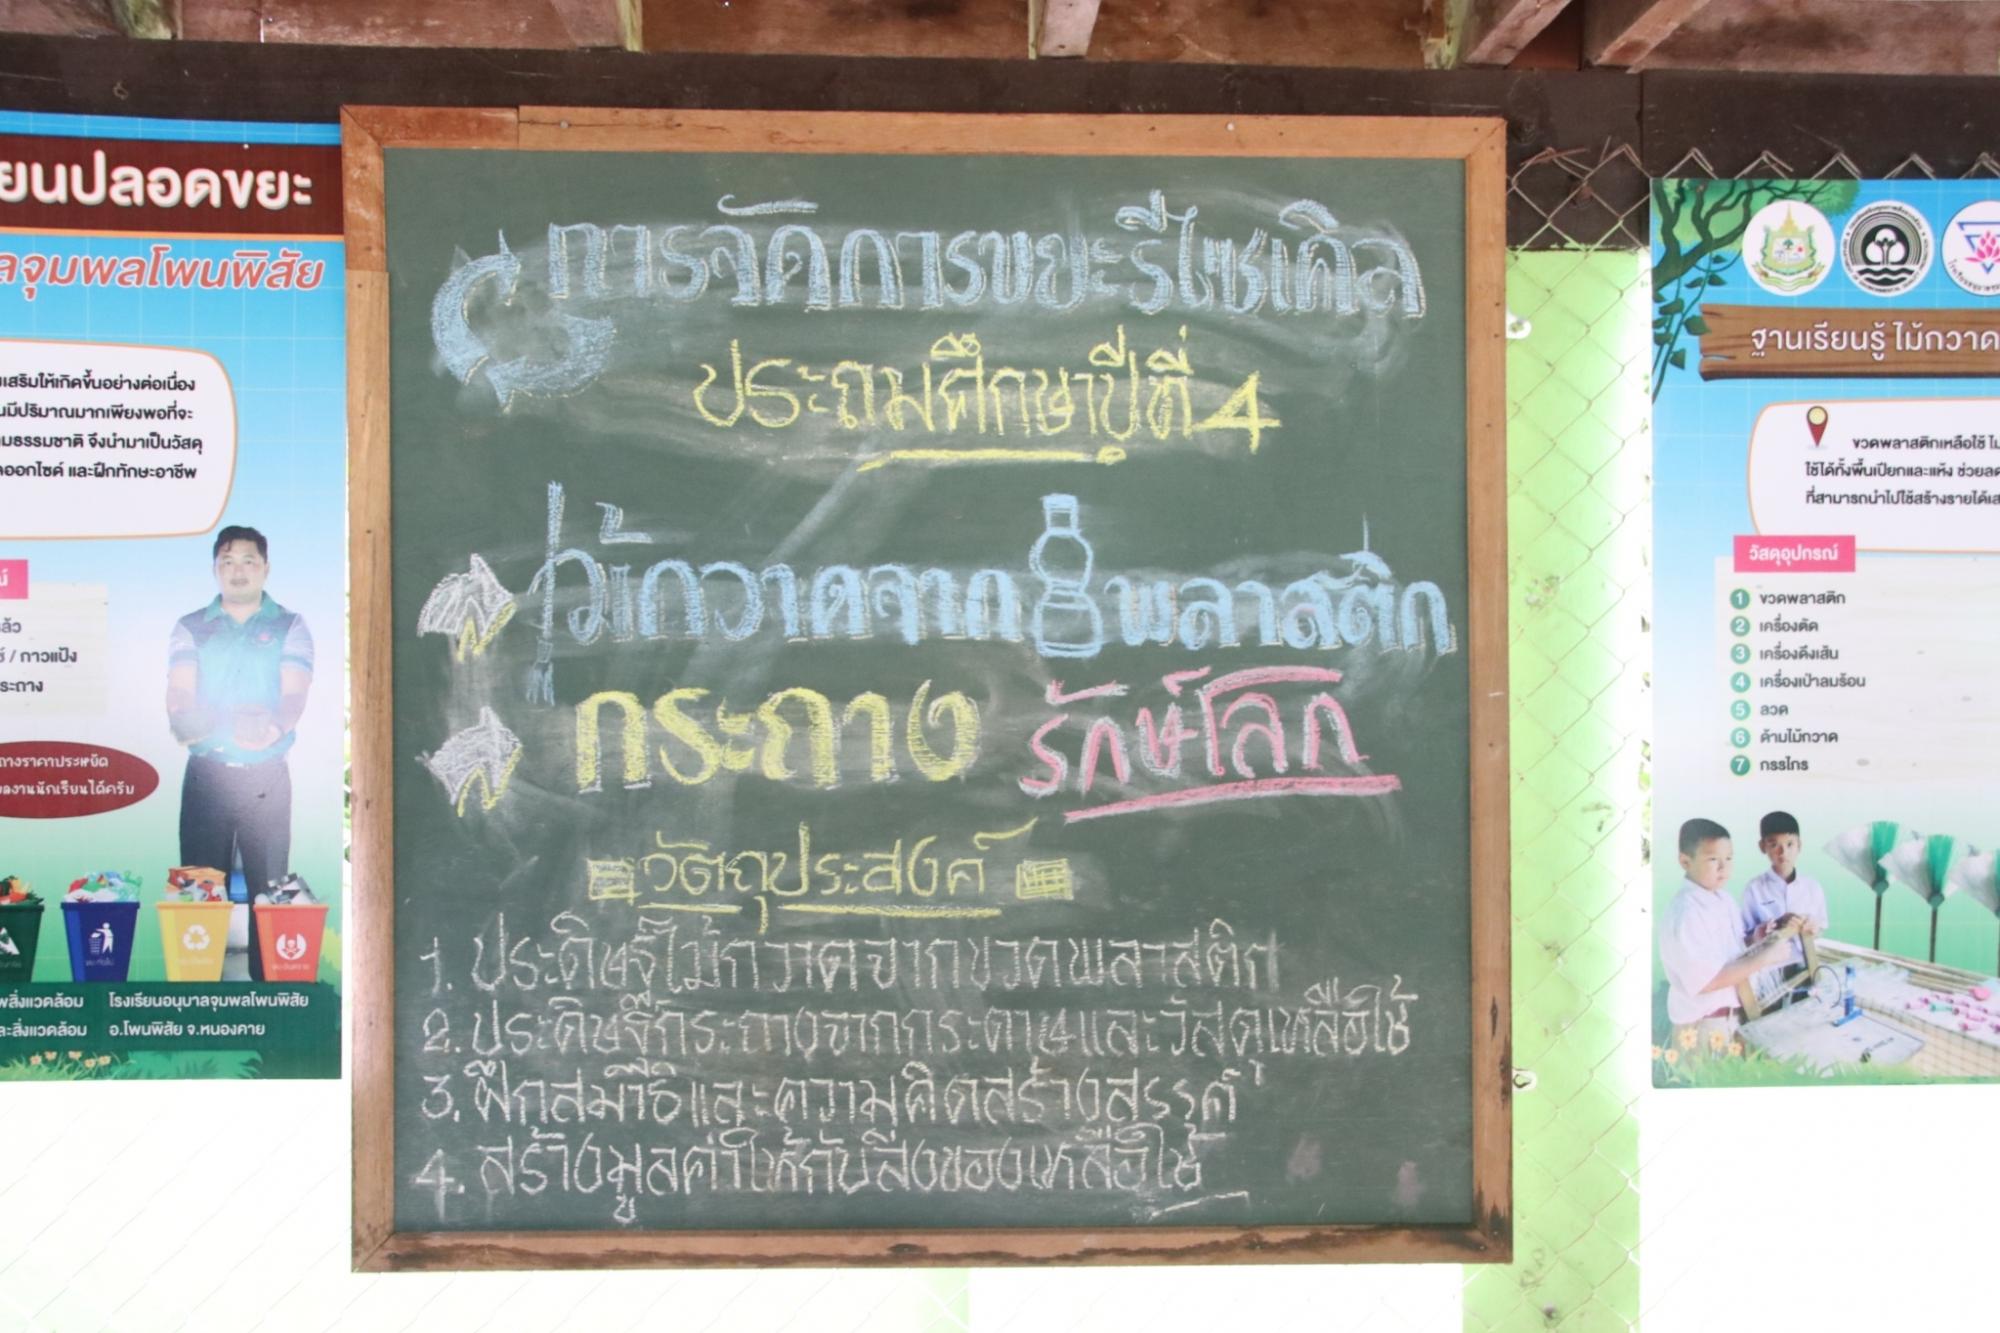 ยนปลอดขยะ
ลจุมพลโพนพิสัย
เสริมให้เกิดขึ้นอย่างต่อเนื่อง
นมีปริมาณมากเพียงพอที่จะ
มธรรมชาติ จึงนำมาเป็นวัสดุ
ดออกไซด์ และฝึกทักษะอาชีพ
ล้ว
/ กาวแป้ง
ระถาง
ถางราคาประหยัด
ลงานนักเรียนได้ครับ
พสิ่งแวดล้อม โรงเรียนอนุบาลจุมพลโพนพิสัย
ละสิ่งแวดล้อม อ.โพนพิสัย จ.หนองคาย
การจัดการขยะรีไซเคิล
ประถมศึกษาปีที่ 4
ไม้กวาดจาก พลาสติก
กระถาง รักษ์โลก
วัตถุประสงค์
1. ประดิษฐ์ไม้กวาดจากขวดพลาสติก
2. ประดิษฐ์กระถางจากกระดาษและวัสดุเหลือใช้
3. ฝึกสมาธิและความคิดสร้างสรรค์
4. สร้างมูลค่าให้กับสิ่งของเหลือใช้
ฐานเรียนรู้ ไม้กวาด
ขวดพลาสติกเหลือใช้ ไม
ใช้ได้ทั้งพื้นเปียกและแห้ง ช่วยลด
ที่สามารถนำไปใช้สร้างรายได้เส
วัสดุอุปกรณ์
1 ขวดพลาสติก
2 เครื่องตัด
3 เครื่องดึงเส้น
4 เครื่องเป่าลมร้อน
5 ลวด
6 ด้ามไม้กวาด
7 กรรไกร